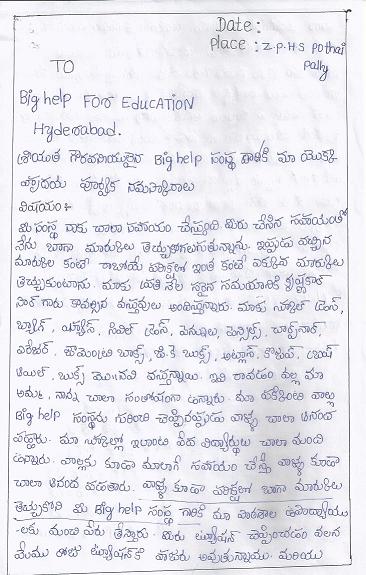 Date :
Place : Z.P.H.S Pothai
Pally
TO
Big help FOR EDUCATION
Hyderabad.
శ్రీయుత గౌరవనీయులైన Big help సంస్థ గారికి మా యొక్క
హృదయ పూర్వక నమస్కారాలు
విషయం :-
మీ సంస్థ నాకు చాలా సహాయం చేస్తుంది మీరు చేసిన సహాయంతో
నేను బాగా మార్కులు తెచ్చుకోగలుగుతున్నాను. ఇప్పుడు వచ్చిన
మార్కుల కంటే రాబోయే పరీక్షల్లో ఇంత కంటే ఎక్కువ మార్కులు
తెచ్చుకుంటాను. మాకు ప్రతి నెల సరైన సమయానికి
సార్ గారు కావలసిన వస్తువులు అందిస్తున్నారు. మాకు స్కూల్ డ్రెస్,
బ్యాగ్, సివిల్ డ్రెస్, పెన్నులు, పెన్సిల్స్, షార్ప్‌నార్,
ఎరేజర్, జామెంట్రి బాక్స్, జి.కె బుక్స్, అట్లాస్, కొబ్బరి
ఆయిల్, బుక్స్ మొ॥నవి వస్తున్నాయి. ఇవి రావడం వల్ల మా
అమ్మ, నాన్న చాలా సంతోషంగా ఉన్నారు. మా పక్కింటి వాల్లు
Big help సంస్థను గురించి చెప్పినప్పుడు వాళ్ళు చాలా ఆనంద
పడ్డారు. మా స్కూల్లో ఇలాంటి పేద విద్యార్థులు చాలా మంది
ఉన్నారు. వాల్లకు కూడా మాలాగే సహాయం చేస్తే వాళ్ళు కూడా
చాలా ఆనంద పడతారు. వాళ్ళు కూడా పరీక్షల్లో బాగా మార్కులు
తెచ్చుకొని మీ Big help సంస్థ గారికి మా పాఠశాల ఉపాధ్యాయు
-లకు మంచి పేరు తేస్తారు. మీరు ట్యూషన్ చెప్పించడం వలన
మేము రోజు ట్యూషన్‌కి హాజరు అవుతున్నాము. మరియు